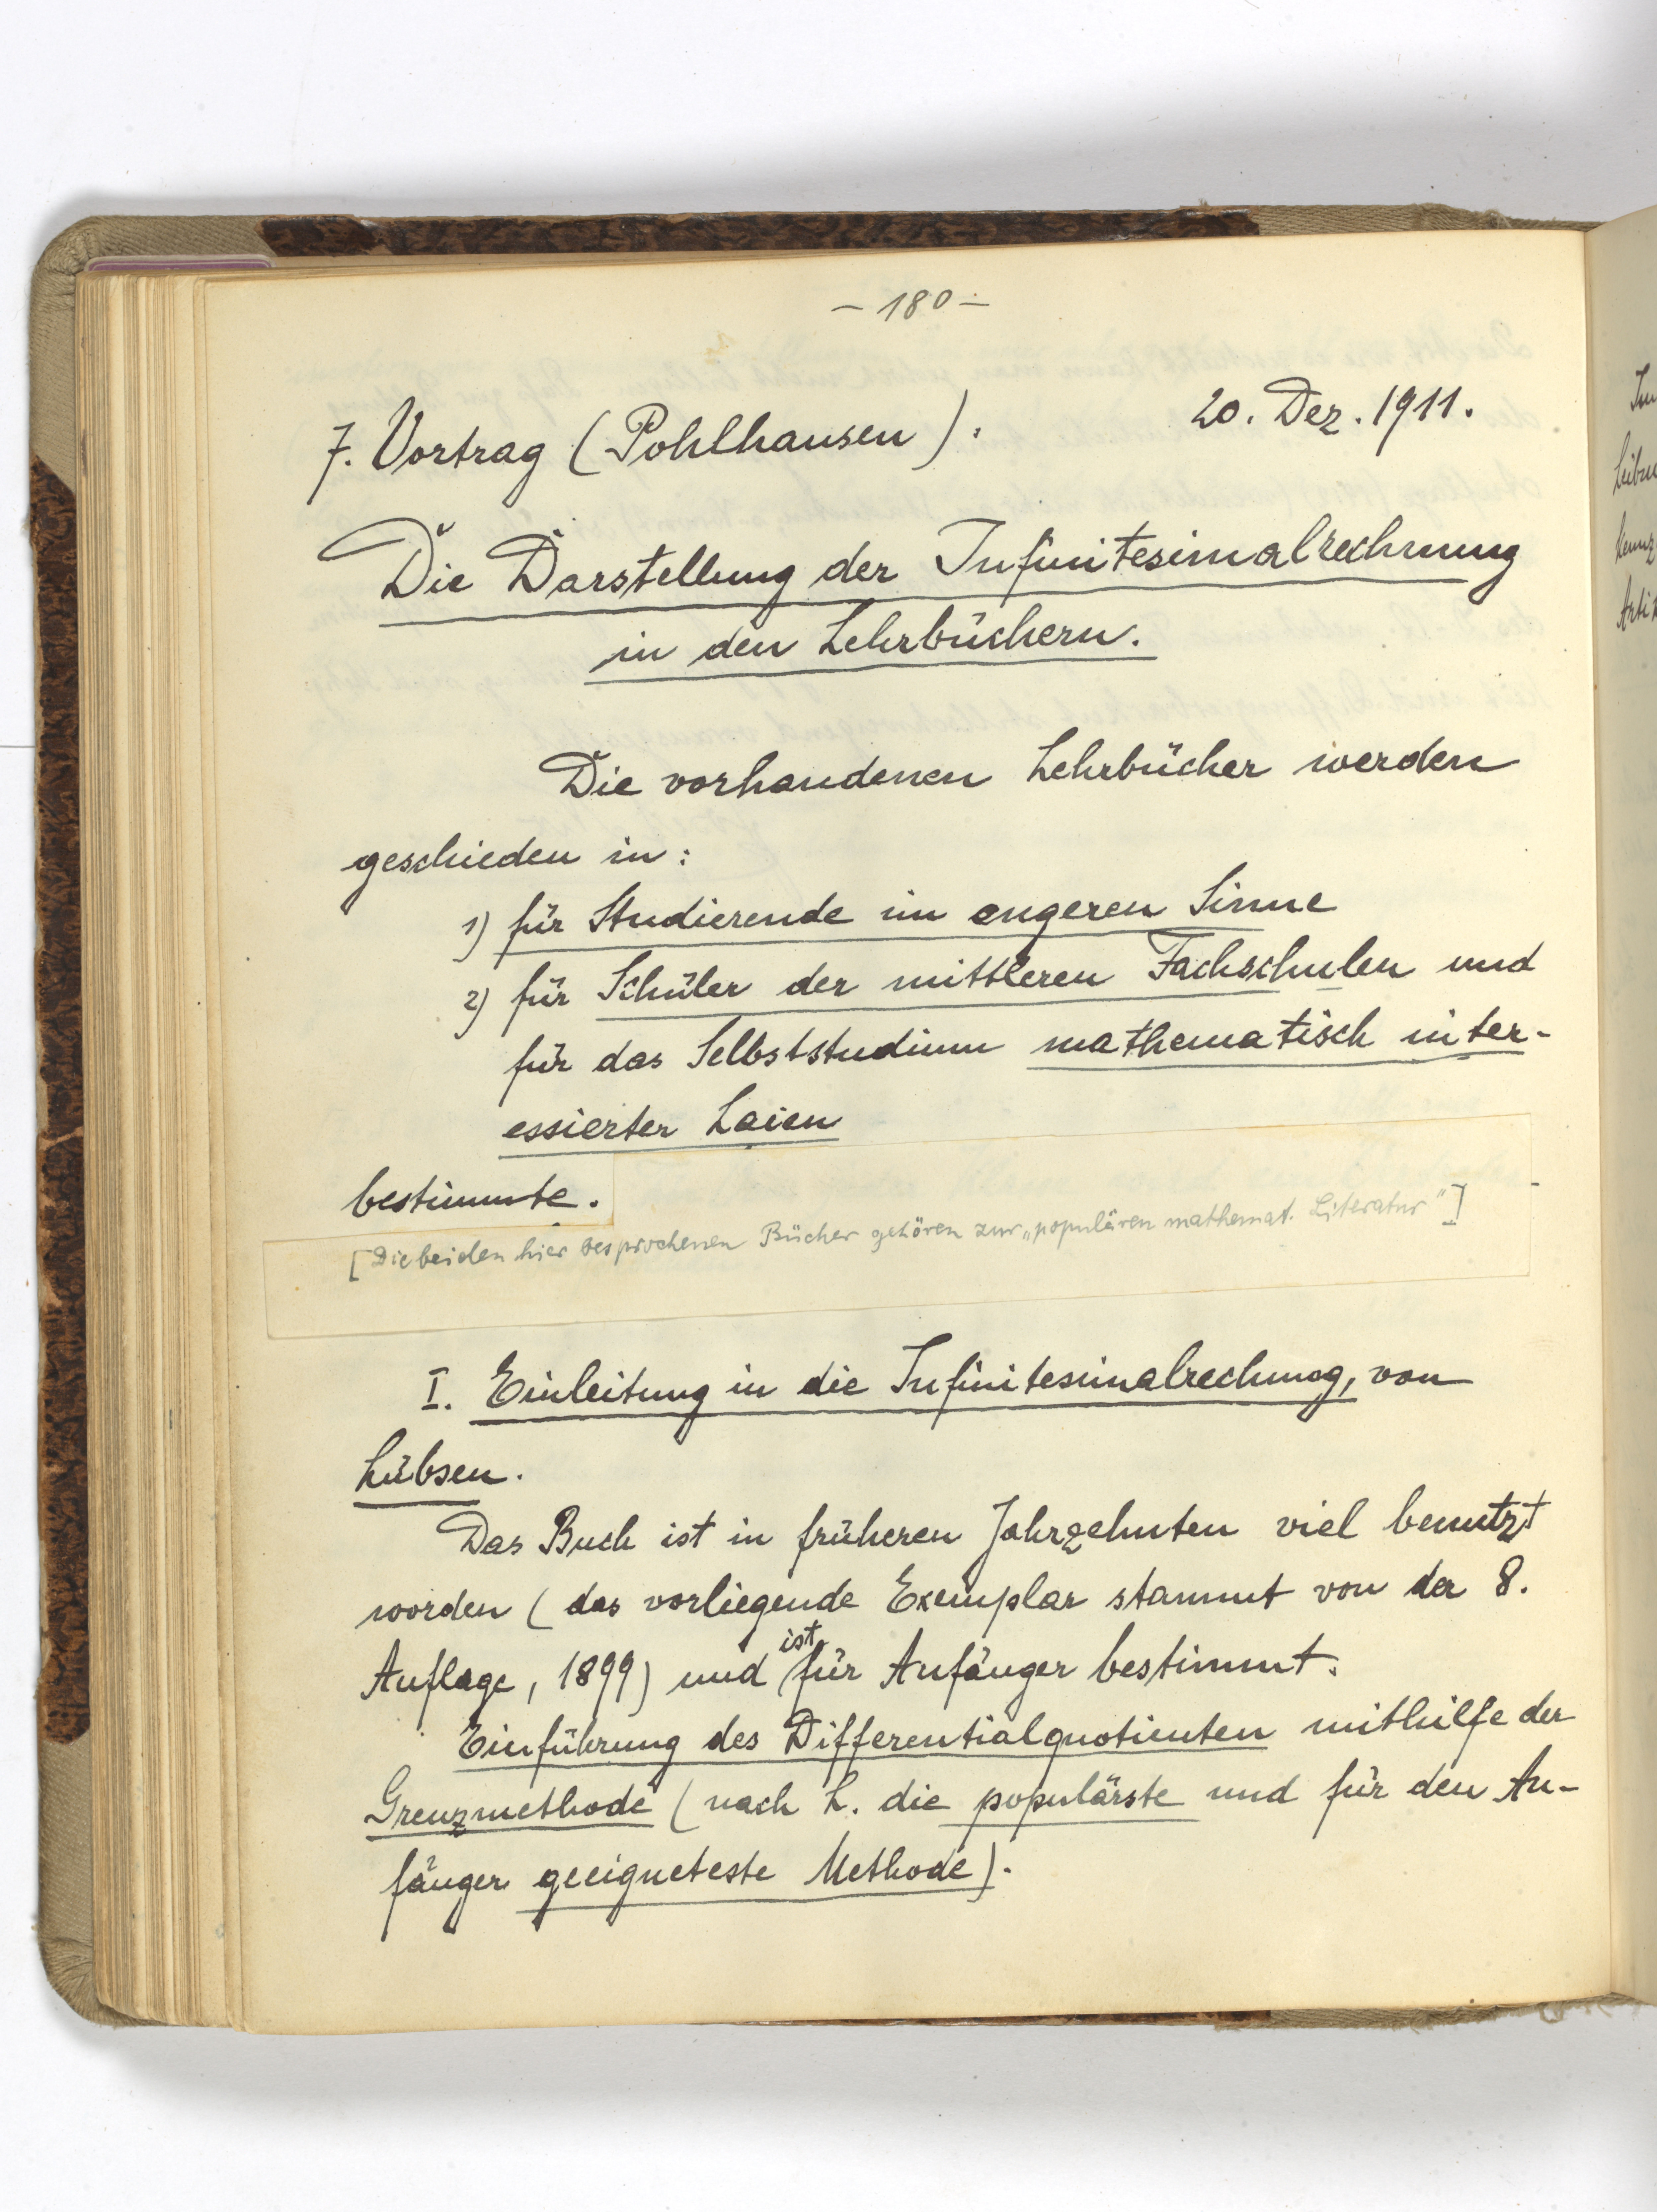 – 180 –
7. Vortrag (Pohlhausen). 20. Dez. 1911.
Die Darstellung der Infinitesimalrechnung
in den Lehrbüchern.
Die vorhandenen Lehrbücher werden
geschieden in:
1) für Studierende im engeren Sinne
2) für Schüler der mittleren Fachschulen und
für das Selbststudium mathematisch inter-
essierter Laien
bestimmte.
[Die beiden hier besprochenen Bücher gehören zur „populären mathemat. Literatur"]
I. Einleitung in die Infinitesimalrechnung, von
Lübsen.
Das Buch ist in früheren Jahrzehnten viel benutzt
worden (das vorliegende Exemplar stammt von der 8.
Auflage, 1899) und ist für Anfänger bestimmt.
Einführung des Differentialquotienten mithilfe der
Grenzmethode (nach L. die populärste und für den An-
fänger geeigneteste Methode).